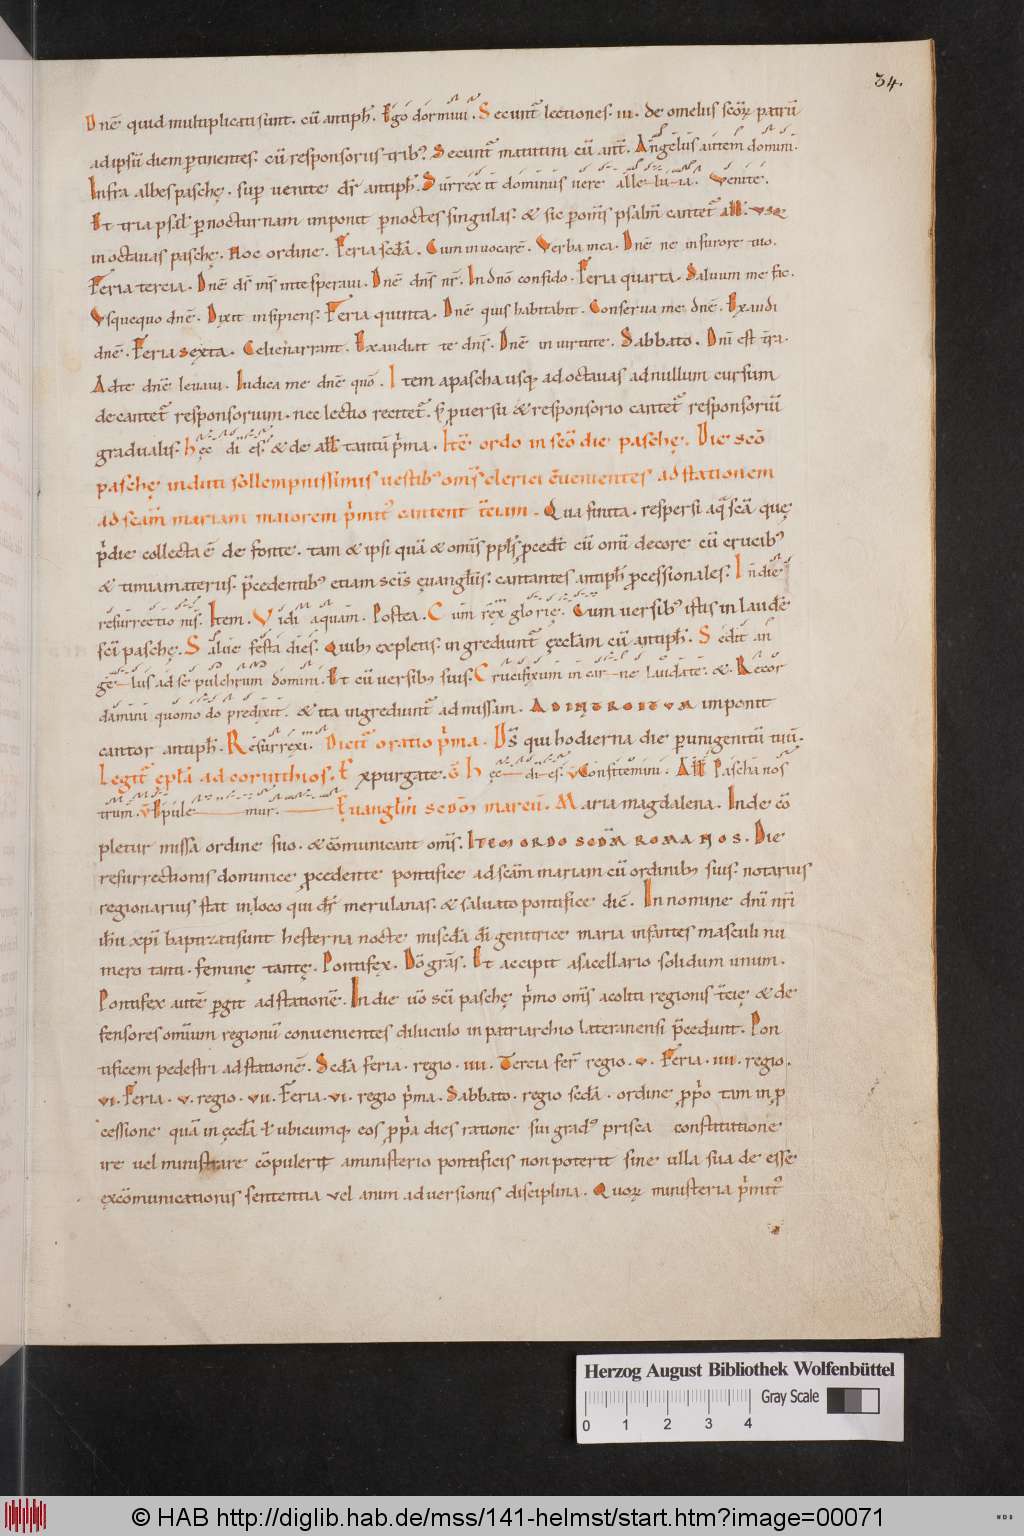 34.
Dnē quid multiplicati sunt. cū antiph̄. Ego dormivi. Secunt̄ lectiones. iii. de omeliis sc̄oꝝ patrū
ad ipsū diem pertinentes. cū responsoriis trib;. Secunt̄ matutini cū ant̄. Angelus autem domini.
Infra albas paschę. sup venite dr̄ antiph̄. Surrexit dominus vere alleluia. Venite.
Et tria psal̄ p nocturnam imponit p noctes singulas. & sic p om̄s psalm̄ cantet̄ aƚƚ. usq;
in octavas paschę. Hoc ordine. Feria sedā. Cum invocarē. Verba mea. Dnē ne in furore tuo.
Feria tercia. Dnē ds̄ ms̄ in te speravi. Dnē dns̄ nr̄. In dnō confido. Feria quarta. Salvum me fac.
Usquequo dnē. Dixit insipiens. Feria quinta. Dnē quis habitabit. Conserva me dnē. Exaudi
dnē. Feria sexta. Celi enarrant. Exaudiat te dns̄. Dnē in virtute. Sabbato. Dnī est tr̄a.
Ad te dnē levavi. Iudica me dnē quō. Item a pascha usq; ad octavas ad nullum cursum
decantet̄ responsorium. nec lectio recitet̄. s; p versu & responsorio cantet̄ responsoriū
gradualis. hęc dies. & de aƚƚ tantū p̄ma. Itē ordo in scō die paschę. Die scō
paschę induti sollempnissimis vestib; om̄s clerici cvenientes ad stationem
ad scām mariam maiorem p̄mit; cantent t̄ciam. Qua finita. respersi aq̄ scā quę
p̄die collecta ē de fonte. tam & ipsi quā & om̄is ppl̄s pcedt̄ cū omī decore cū crucib;
& timiamateriis. p̄cedentib; etiam scīs ęvangliis. cantantes antiph̄ pcessionales. In die
resurrectionis. Item. Vidi aquam. Postea. Cum rex glorię. Cum versib; istis in laudē
scī paschę. Salve festa dies. Quib; expletis. ingrediunt̄ ęccl̄am cū antiph̄. Sedit an
gelus ad sepulchrum domini. Et cū versib; suis. Crucifixum in carne laudate. &. Recor
damini quomodo predixit. & ita ingrediunt̄ ad missam. AD INTROITUM imponit
cantor antiph̄. Resurrexi. Dicit̄ oratio p̄ma. Ds̄ qui hodierna die p unigenitū tuū.
Legit̄ epl̄a ad corinthios. Expurgate. G̅ Hęc dies. V Confitemini. Aƚƚ Pascha nos
trum. V Epulemur. Evangliū sedm̄ marcū. Maria magdalena. Inde cō
pletur missā ordine suo. & cōmunicant om̄s. ITEM ORDO SEDM̄ ROMANOS. Die
resurrectionis dominice pcedente pontifice ad scām mariam cū ordinib; suis. notarius
regionarius stat in loco qui dr̄ merulanas. & salutato pontifice dic̄. In nomine dnī nrī
ih̄u xpī baptizati sunt hesterna nocte in scā dī genitrice maria infantes masculi nu
mero tanti. feminę tantę. Pontifex. Dō grās. Et accipit a sacellario solidum unum.
Pontifex autē pgit ad stationē. In die v̄o scī paschę p̄mo om̄s acoliti regionis t̄cię & de
fensores omnium regionū convenientes diluculo in patriarchio lateranensi p̄cedunt. Pon
tificem pedestri ad stationē. Sedā feria. regio. iiii. Tercia fer̄ regio. v. Feria. iiii. regio.
vi. Feria. v. regio. vii. Feria. vi. regio p̄ma. Sabbato. regio sedā. ordine pp̄o tam in p
cessione quā in ęccl̄a ƚ ubicumq; eos pp̄a dies ratione sui grad; prisca constitutione
ire vel ministrare cōpulerit a ministerio pontificis non poterit sine ulla sua de esse
excōmunicationis sententia vel anim adversionis disciplina. Quoꝝ ministeria p̄mit;
Herzog August Bibliothek Wolfenbüttel
Gray Scale
0 1 2 3 4
© HAB http://diglib.hab.de/mss/141-helmst/start.htm?image=00071